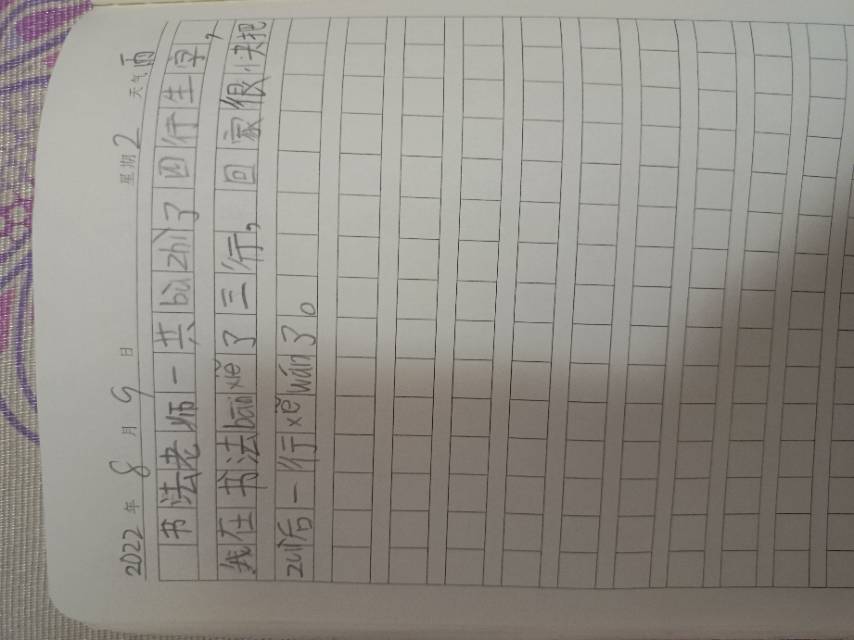 2022年 8月 9日 星期2 天气雨
书法老师一共bùzhì了四行生字,
我在书法bānxiě了三行,回家很快把
zuì后一行xěwán了。